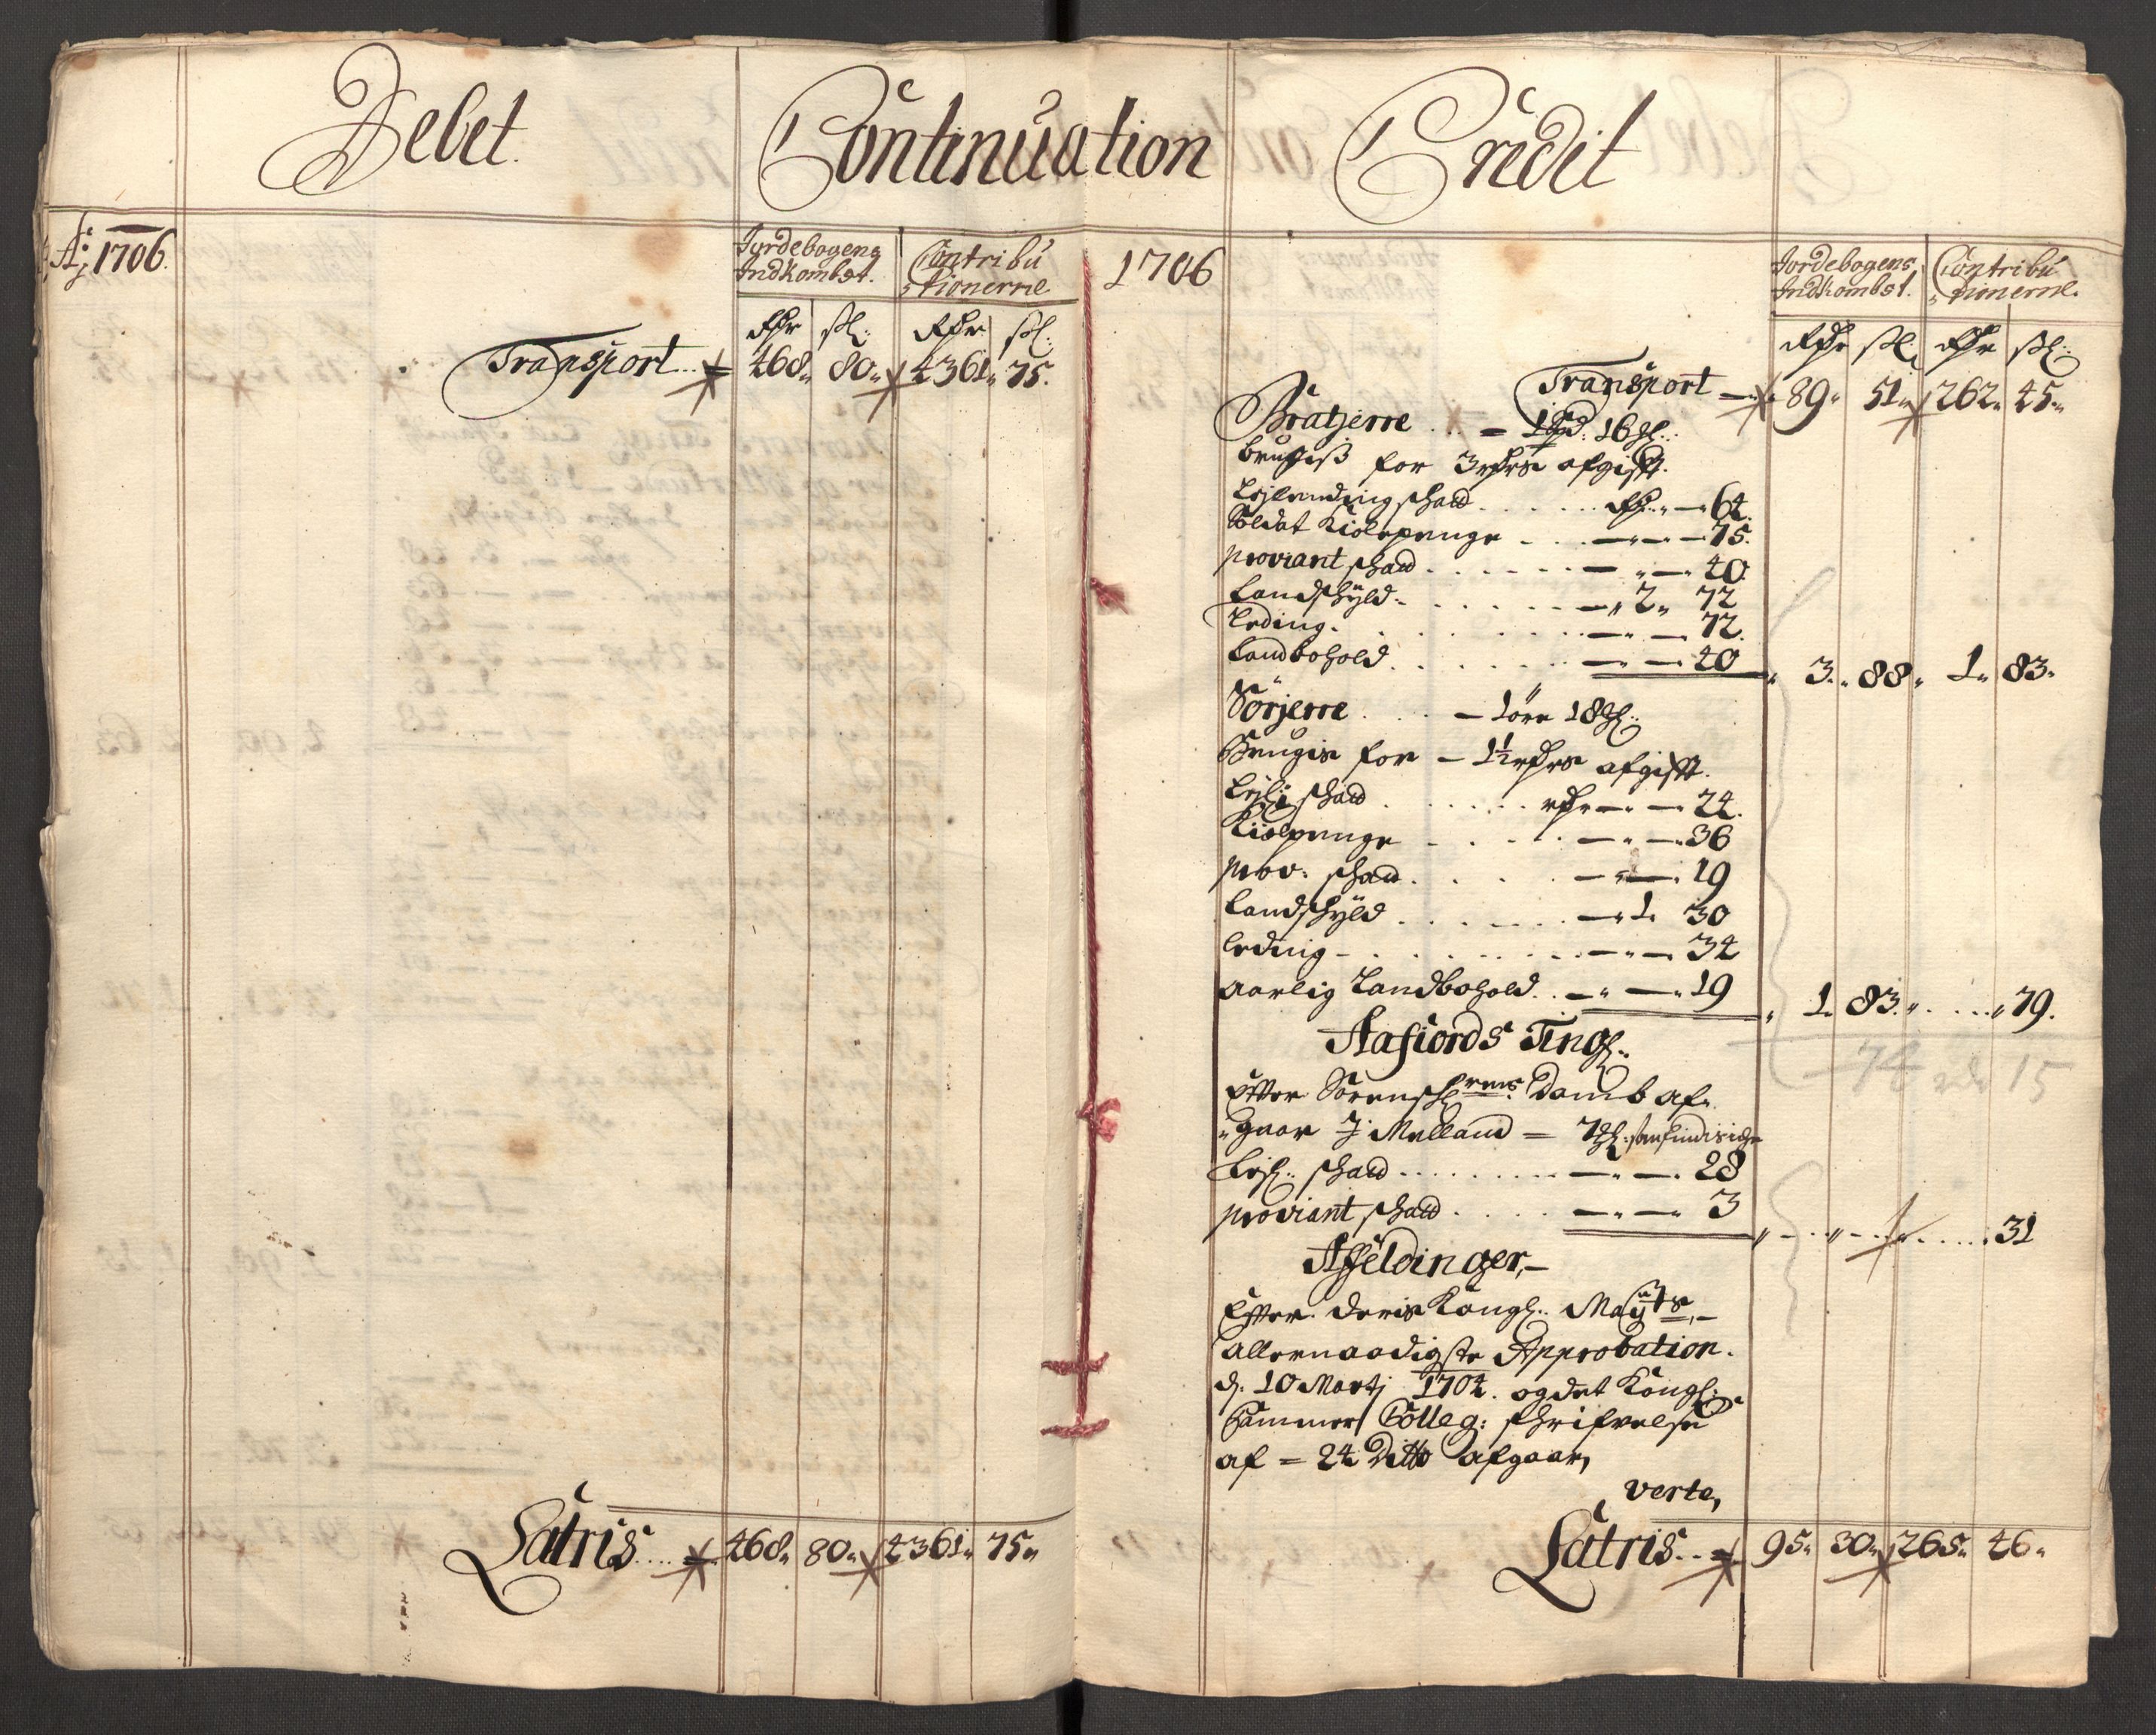 Debet. Continuation Credit
Ao 1706.
Jordebogens Indkombst.
Contribu
tionerne
Rdr ß: Rdr ß:
Transport.. 468„ 80„ 4361„ 75.
Latris.... 468„ 80„ 4361„ 75„
1706
Jordebogens Indkombst.
Contribu
tionerne.
Rdr ß: Rdr ß:
Transport — 89„ 51„ 262„ 45„
Bratjerre ... = 1 16
for 3 afgifft.
Leylendingschatt ...... — 64.
Soldat Kiolepenge - ... — 75.
proviant schatt ...... — „— 40
Landschyld ...... — „ 2„ 72
Leding. ...... — 72.
Landbohold ...... — 40 3„ 88„ 1„ 83„
Sörjerre .... — 1 öre 18
Brugis for — 1½ afgifft.
Leyl: schatt ...... — 24.
Kiolpenge ...... — „— 36
prov: schatt. ...... — 19
Landschyld ...... — „ 1„ 30
leding - ...... — 34
aarlig Landbohold .. — „— 19 1„ 83„ .... „ 79.
Aafiords Ting.
Effter Sorenschrifverens Domb af„
„gaar J: Melland = 7
Leyl: schatt ...... — 28
proviant schatt .... — 3 „ - .. „ - ...... 31
Affeldinger,—
Effter deris Kongl: Mayts,—
allernaadigste Approbation.
d. 10 Martj 1704. og det Kongl:
Cammer Colleg: schrifvelse
af = 24 Ditto afgaar,
verte,
Latris.. 95„ 30„ 265„ 46„